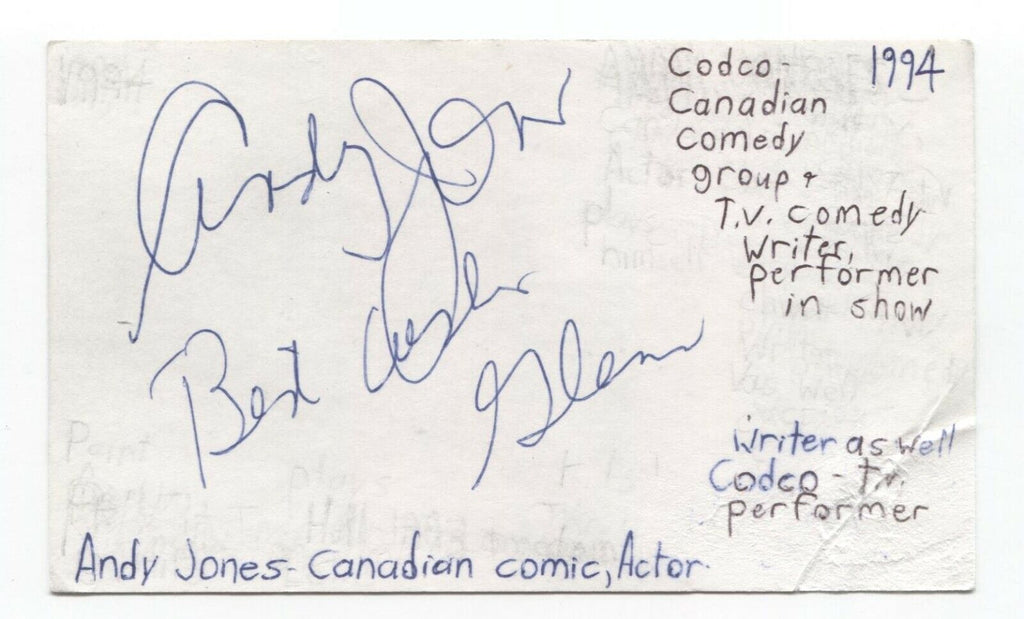 Andy Jones
Best wishes
Glenn
Codco - 1994
Canadian
comedy
group +
T.V. comedy
writer,
performer
in show
writer as well
Codco - T.V.
performer
Andy Jones - Canadian comic, Actor.